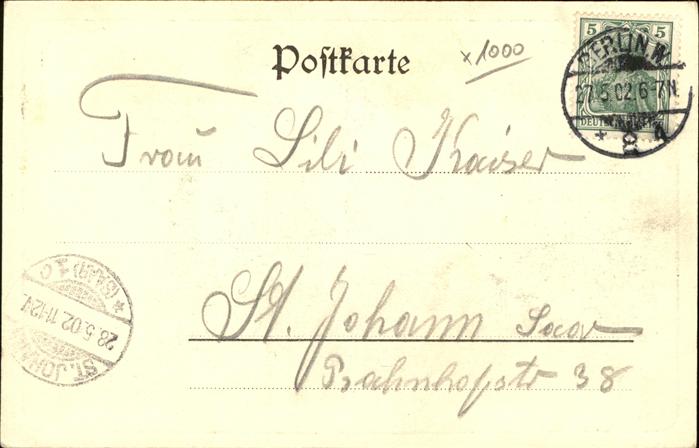 Postkarte
x1000
5 5
BERLIN.W.
27.5.02.6-7N.
Frau Lili Kaiser
St. Johann Saar
Bahnhofstr 38
ST. JOHANN
28.5.02.11-12V.
*(SAAR) 1 c